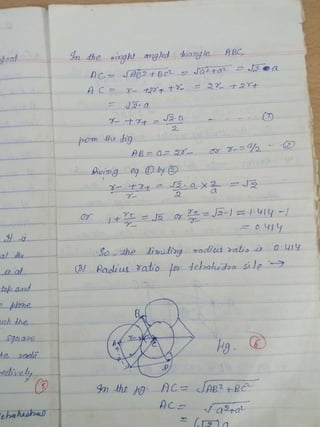 In the right angled triangle ABC,
AC = √AC² + BC² = √a² + a² = √2 a
AC = r- + 2r+ + r- = 2r- + 2r+
= √2·a
r- + r+ = √2·a / 2 - - - - - ①
from the fig
AB = a = 2r- or r- = a/2 - ②
Dividing eq ① by ②
r- + r+ / r- = √2·a / 2 × 2/a = √2
or 1 + r+/r- = √2 or r+/r- = √2-1 = 1.414 - 1
= 0.414
So the limiting radius ratio is 0.414
(3) Radius ratio for tetrahedra site →
B
A
C
fig. ⑥
In the fig. AC = √AB² + BC²
AC = √a² + a²
= √2 a
If a
is at
top and
plane
such the
square
radii
ectively
③
tetrahedral